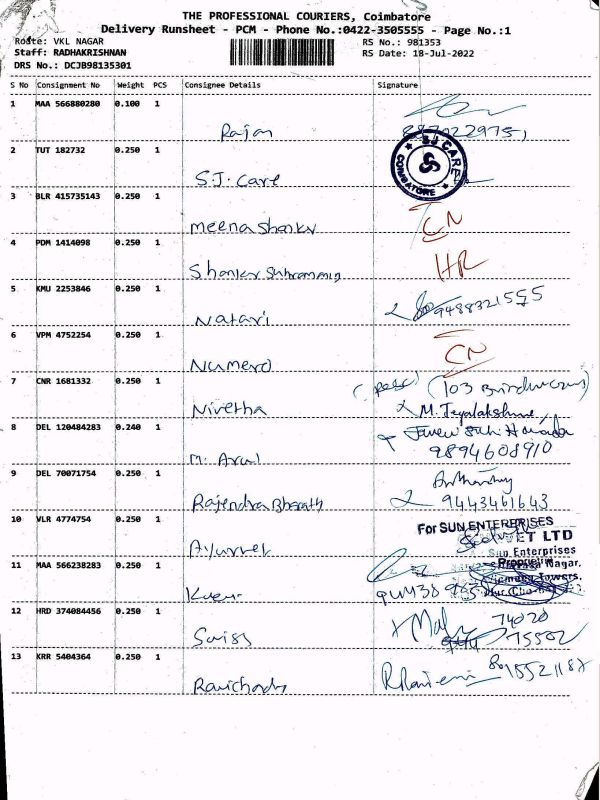 THE PROFESSIONAL COURIERS, Coimbatore
Delivery Runsheet - PCM - Phone No.:0422-3505555 - Page No.:1
Route: VKL NAGAR RS No.: 981353
Staff: RADHAKRISHNAN RS Date: 18-Jul-2022
DRS No.: DCJB98135301
S No Consignment No Weight PCS Consignee Details Signature
1 MAA 566880280 0.100 1
Rajan
2 TUT 182732 0.250 1
SJ CARE COIMBATORE
S.J. Care
3 BLR 415735143 0.250 1
Meena Shankr CN
4 PDM 1414098 0.250 1
Shanker HR
5 KMU 2253846 0.250 1
Natari 9488321555
6 VPM 4752254 0.250 1
Numero CN
7 CNR 1681332 0.250 1
(103
Nivetha M. Jeyalakshme
8 DEL 120484283 0.240 1
M. Arul 9894608910
9 DEL 70071754 0.250 1
Rajendra Bharath 9443461643
10 VLR 4774754 0.250 1 For SUN ENTERPRISES
VET LTD
Sun Enterprises
11 MAA 566238283 0.250 1 Proprietrix
Nagar,
Towers,
12 HRD 374084456 0.250 1
74020
Swiss 75502
13 KRR 5404364 0.250 1
Ravichandr